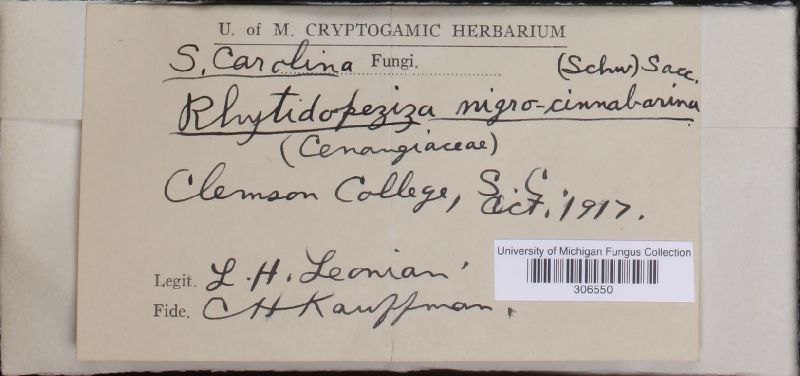 U. of M. CRYPTOGAMIC HERBARIUM
S. Carolina Fungi. (Schw) Sacc.
Rhytidopeziza nigro-cinnabarina
(Cenangiaceae)
Clemson College, S. C.
Oct. 1917.
Legit. L. H. Leonian
Fide. C H Kauffman.
University of Michigan Fungus Collection
306550